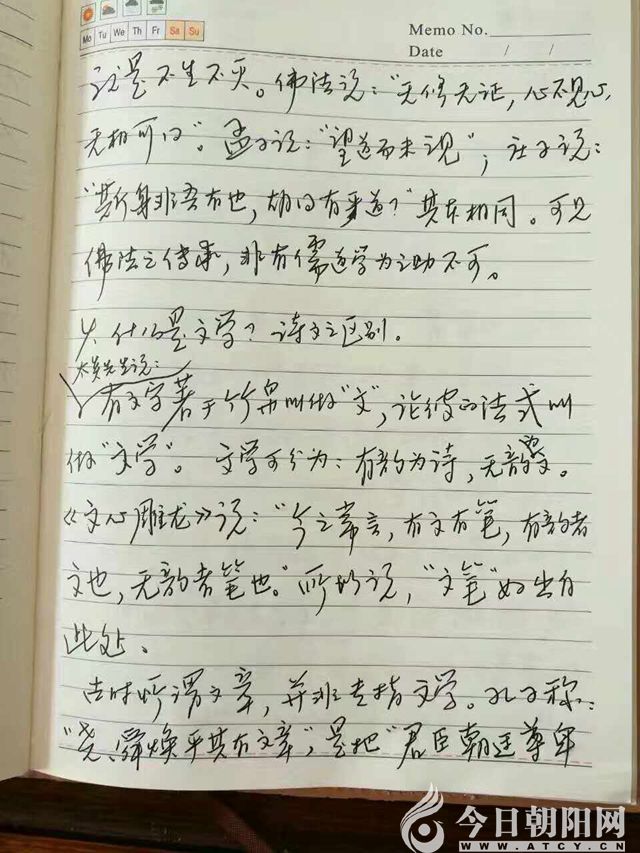 Memo No.
Mo Tu We Th Fr Sa Su
Date / /
这是不生不灭。佛法说："无修无证，心不见心，
无相可得"。孟子说："望道而未之见"；庄子说：
"斯身非吾有也，胡得有乎道？"其本相同。可见
佛法之传承，非有儒道学为之助不可。
4、什么是文学？诗文之区别。
太炎先生说：
有文字著于竹帛叫做"文"，论彼的法式叫
做"文学"。文学可分为：有韵为诗，无韵为文。
《文心雕龙》说："今之常言，有文有笔，有韵者
文也，无韵者笔也。"所以说，"文笔"
此处。
古时所谓文章，并非专指文学。孔子称：
"尧、舜焕乎其有文章"，是把"君臣朝廷尊卑
今日朝阳网
WWW.ATCY.CN